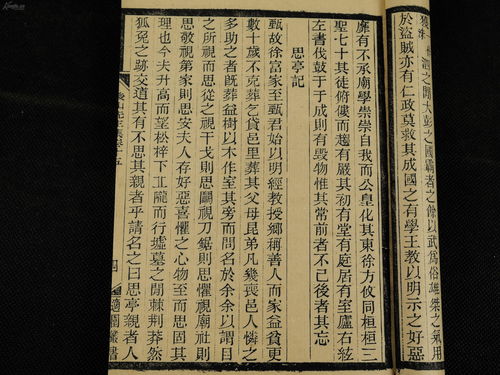 之國霸者之餘以武爲俗雄桀之氣用
於盜賊亦有仁政莫救其成國之有學王教以明示之好惡
靡有不承廟學崇崇自我而公皇化其東徐方攸同桓桓三
聖七十其徒俯僂而趨有嚴其初有堂有庭居有室廬右絃
左書伐鼓于于成則有毀物惟其常前者不已後者其忘
思亭記
甄故徐富家至甄君始以明經教授鄉稱善人而家益貧更
數十歲不克葬乞貸邑里葬其父母昆弟凡幾喪邑人憐之
多助之者旣葬益樹以木作室其旁而問名於余余以謂目
之所視而思從之視干戈則思鬭視刀鋸則思懼視廟社則
思敬視第家則思安夫人存好惡喜懼之心物至而思固其
理也今夫升高而望松梓下丘隴而行墟墓之閒棘荆莽然
狐兔之跡交道其有不思其親者乎請名之曰思亭親者人
後山先生集卷十五
四
適園叢書